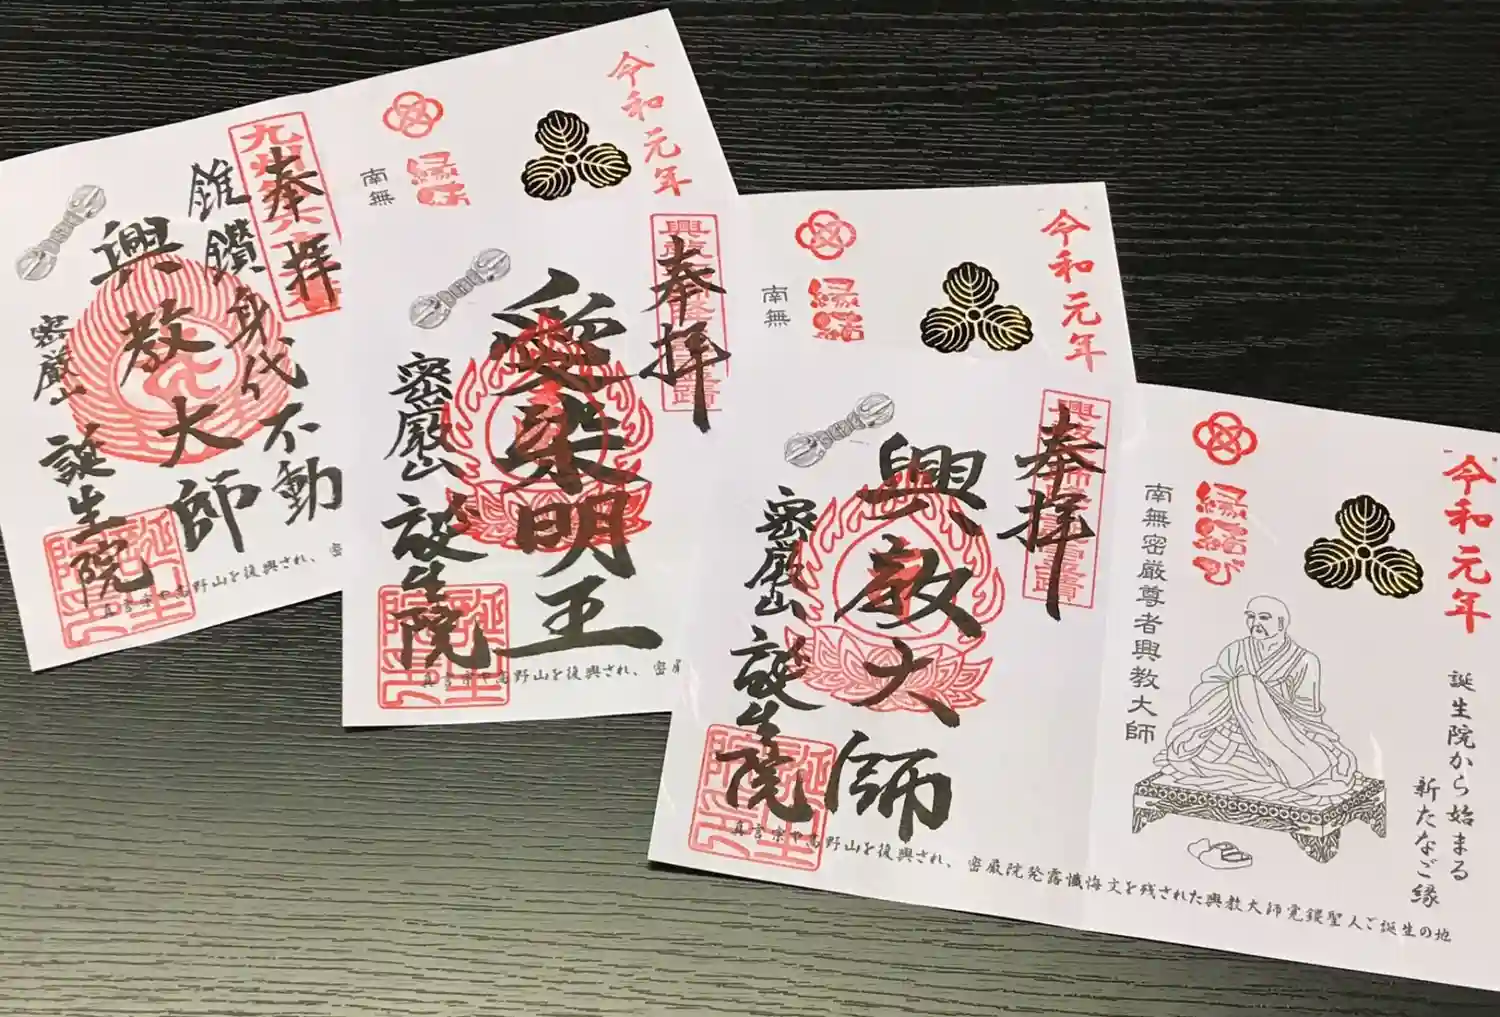 奉拝
錐鑽身代不動
興教大師
密厳山
誕生院
令和元年
南無
真言宗中高野山を復興され、密
奉拝
愛染明王
密厳山
誕生院
令和元年
縁結
南無
真言宗中高野山を復興され、密厳
奉拝
興教大師
密厳山
誕生院
令和元年
縁結び
誕生院から始まる
新たなご縁
南無密厳尊者興教大師
真言宗中高野山を復興され、密厳院発露懺悔文を残された興教大師覚鑁聖人ご誕生の地